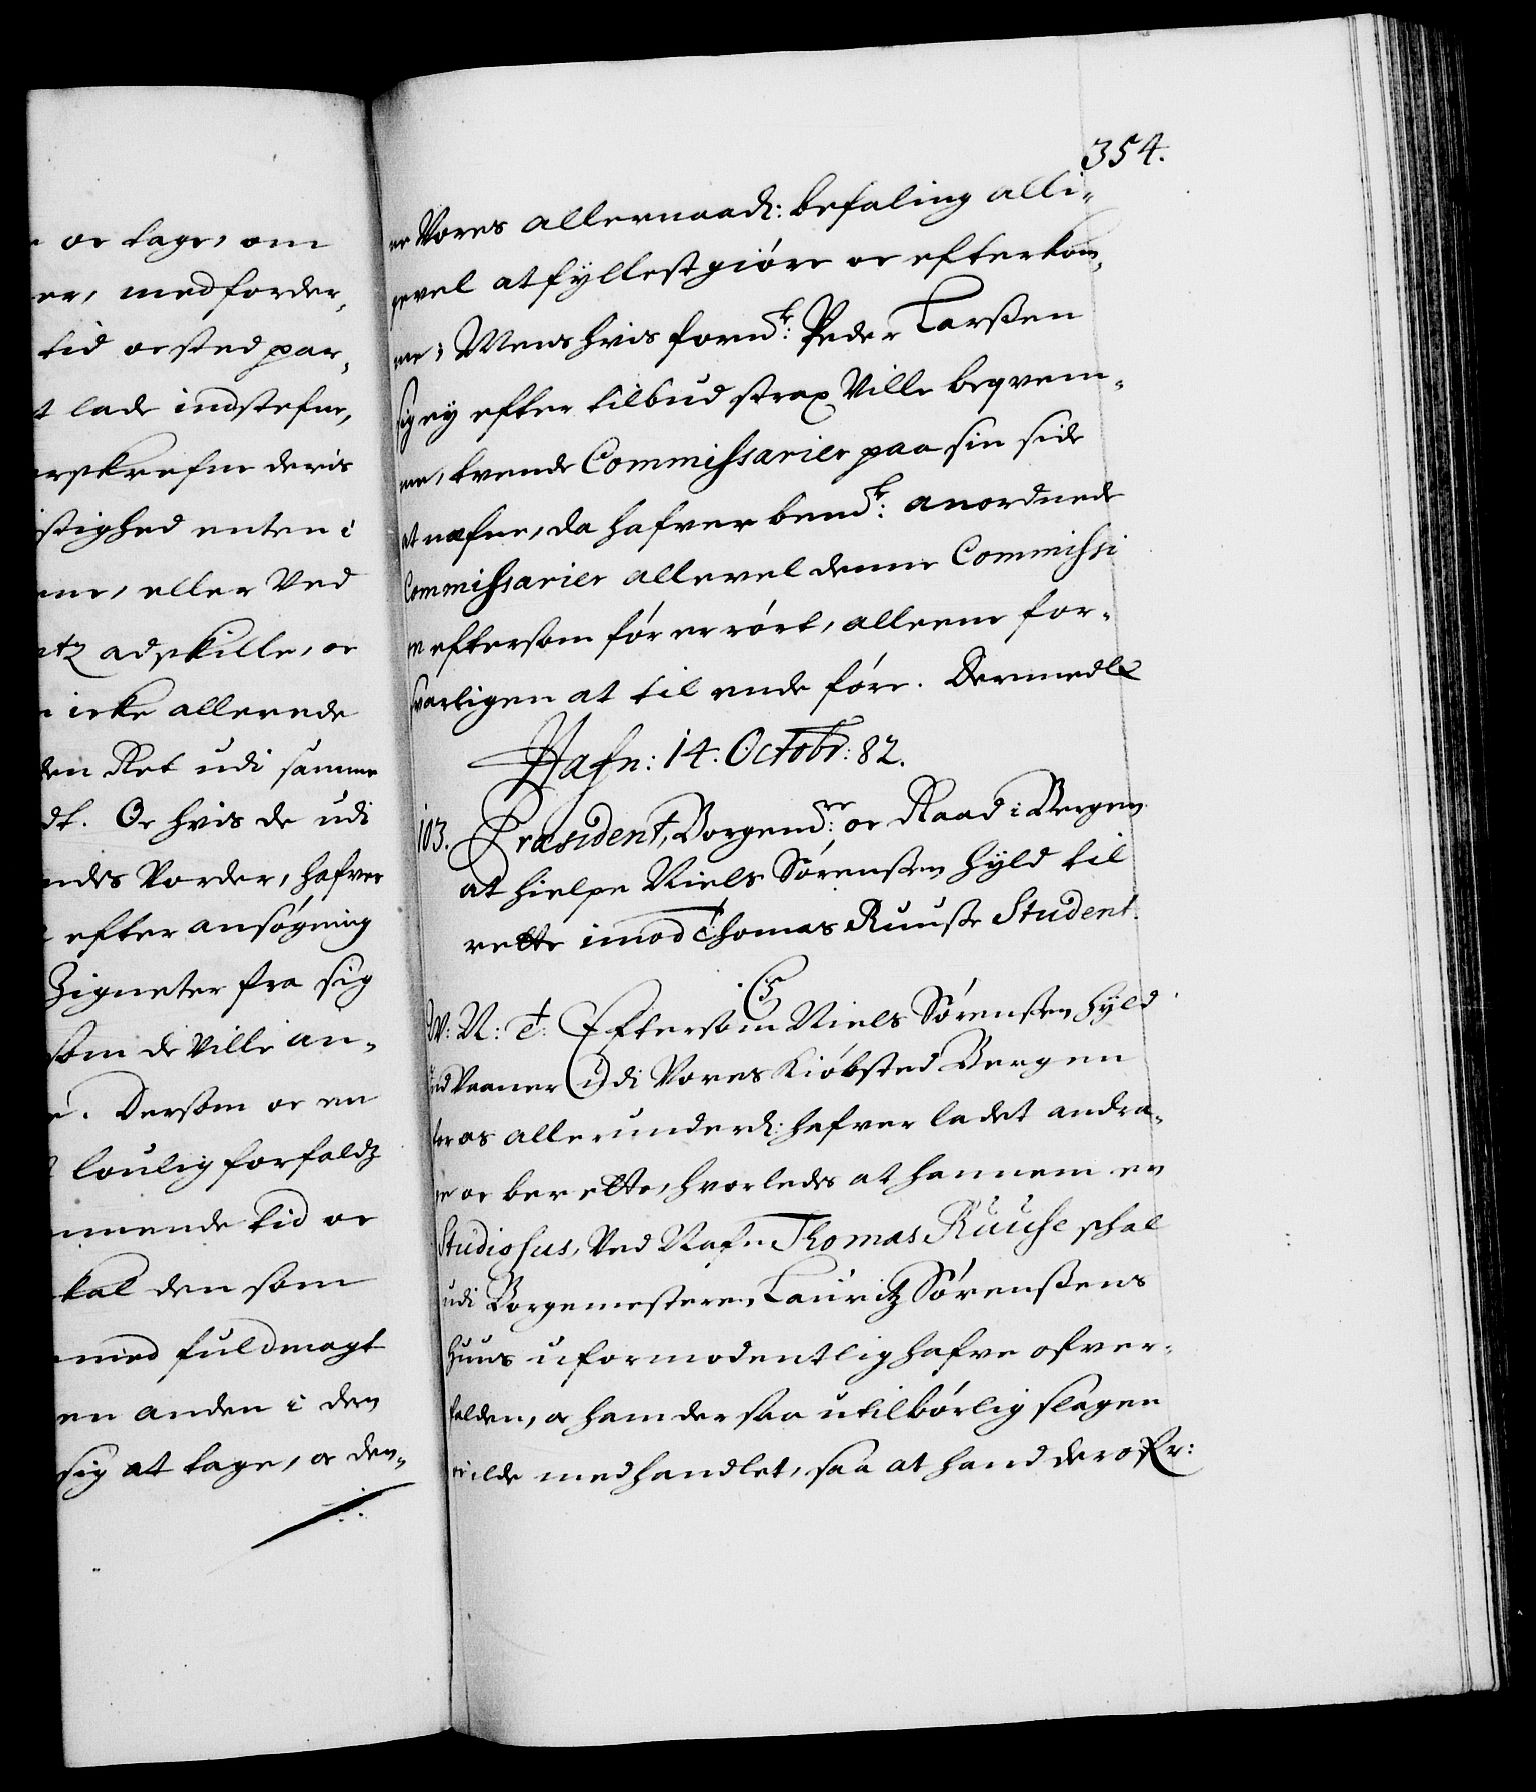 oc tage, om
er, med forder,
tid oc sted par,
t lade indstefne,
erskrefne deris
stighed enten i
ene, eller Ved
adskille, oc
icke allerede
den Ret udi samme
dt. Oc hvis de udi
ndes Vorder, hafver
efter ansøgning
Zigneter fra sig
som de Ville an,
e. Dersom oc en
loulig forfald
mmende tid oc
skal den som
med fuldmagt
en anden i den
sig at tage, oc den,
354.
Vores allernaad: befaling alli,
gevel at fyllestgiøre oc efterkom,
me; Mens hvis fornd: Peder Larssen
sig ey efter tilbud strax Ville beqvem,
me, tvende Commissarier paa sin side
at nefne, da hafver bemd: anordnede
Commissarier allevel denne Commissi
on eftersom før er rørt, alleene for,
svarligen at til ende føre. Dermed
Hafn: 14. Octobr: 82.
103. Præsident, Borgemd: oc Raad i Bergen
at hielpe Niels Sørenssen Hyld til
rette imod Thomas Ruusse Student.
C5
W: N: T: Eftersom Niels Sørenssen Hyld
ind Vaaner udi Vores Kiøbsted Bergen
for os allerunderd: hafver ladet andra,
ge oc berette, hvorledes at hannem en
Studiosus, Ved Nafn Thomas Ruuse schal
udi Borgemestere Lauritz Sørenssens
Huus uformodentlig hafve ofver,
falden, oc ham der saa utilbørlig slagen
oc ilde medhandlet, saa at hand derofr: